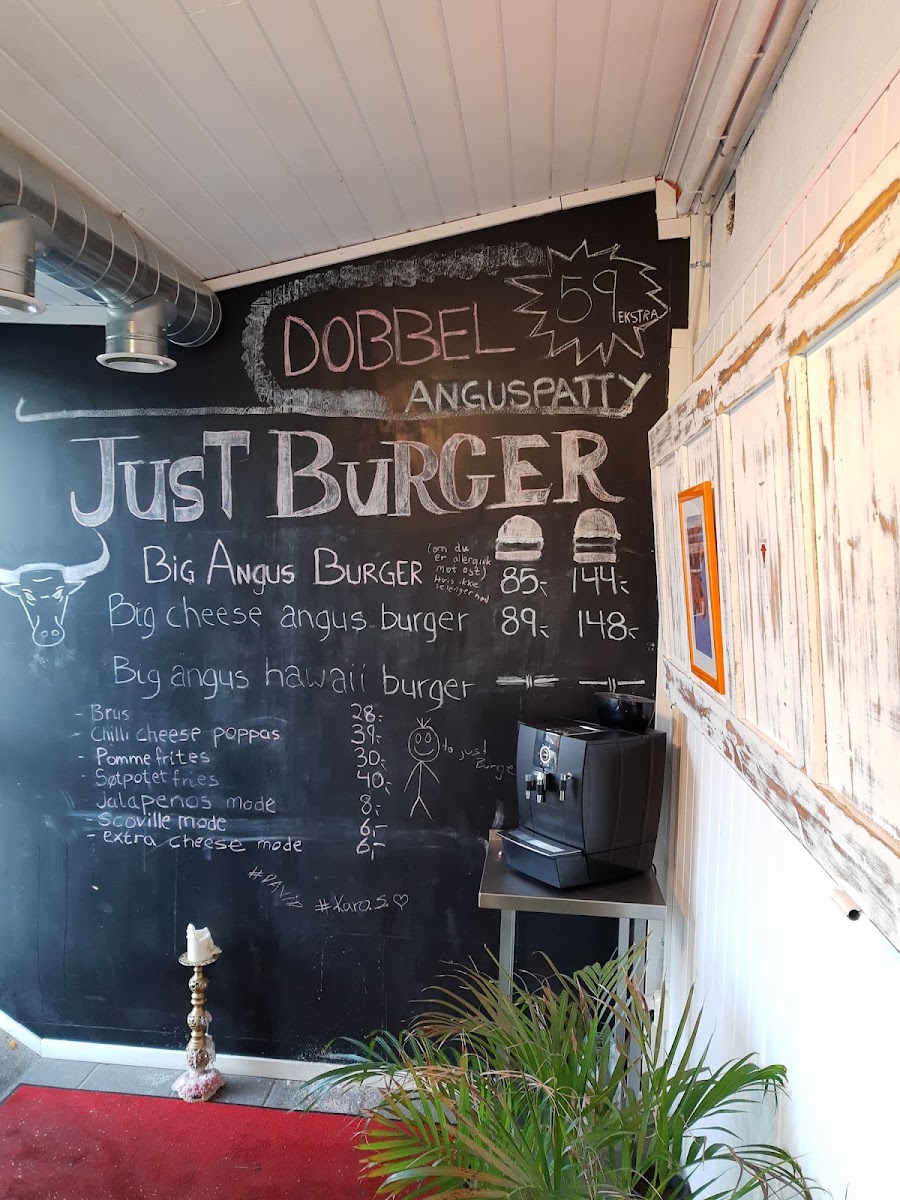 DOBBEL
59
EKSTRA
ANGUSPATTY
JUST BURGER
BIG ANGUS BURGER
(om du
er allergisk
mot ost)
Hvis ikke
85,- 144,-
Big cheese angus burger 89,- 148,-
Big angus hawaii burger -"- -"-
- Brus 28,-
- Chilli cheese poppas 39,-
- Pomme frites 30,-
- Søtpotet fries 40,-
- Jalapenos mode 8,-
- Scoville mode 6,-
- extra cheese mode 6,-
to just
Burge
#XaraS.♡